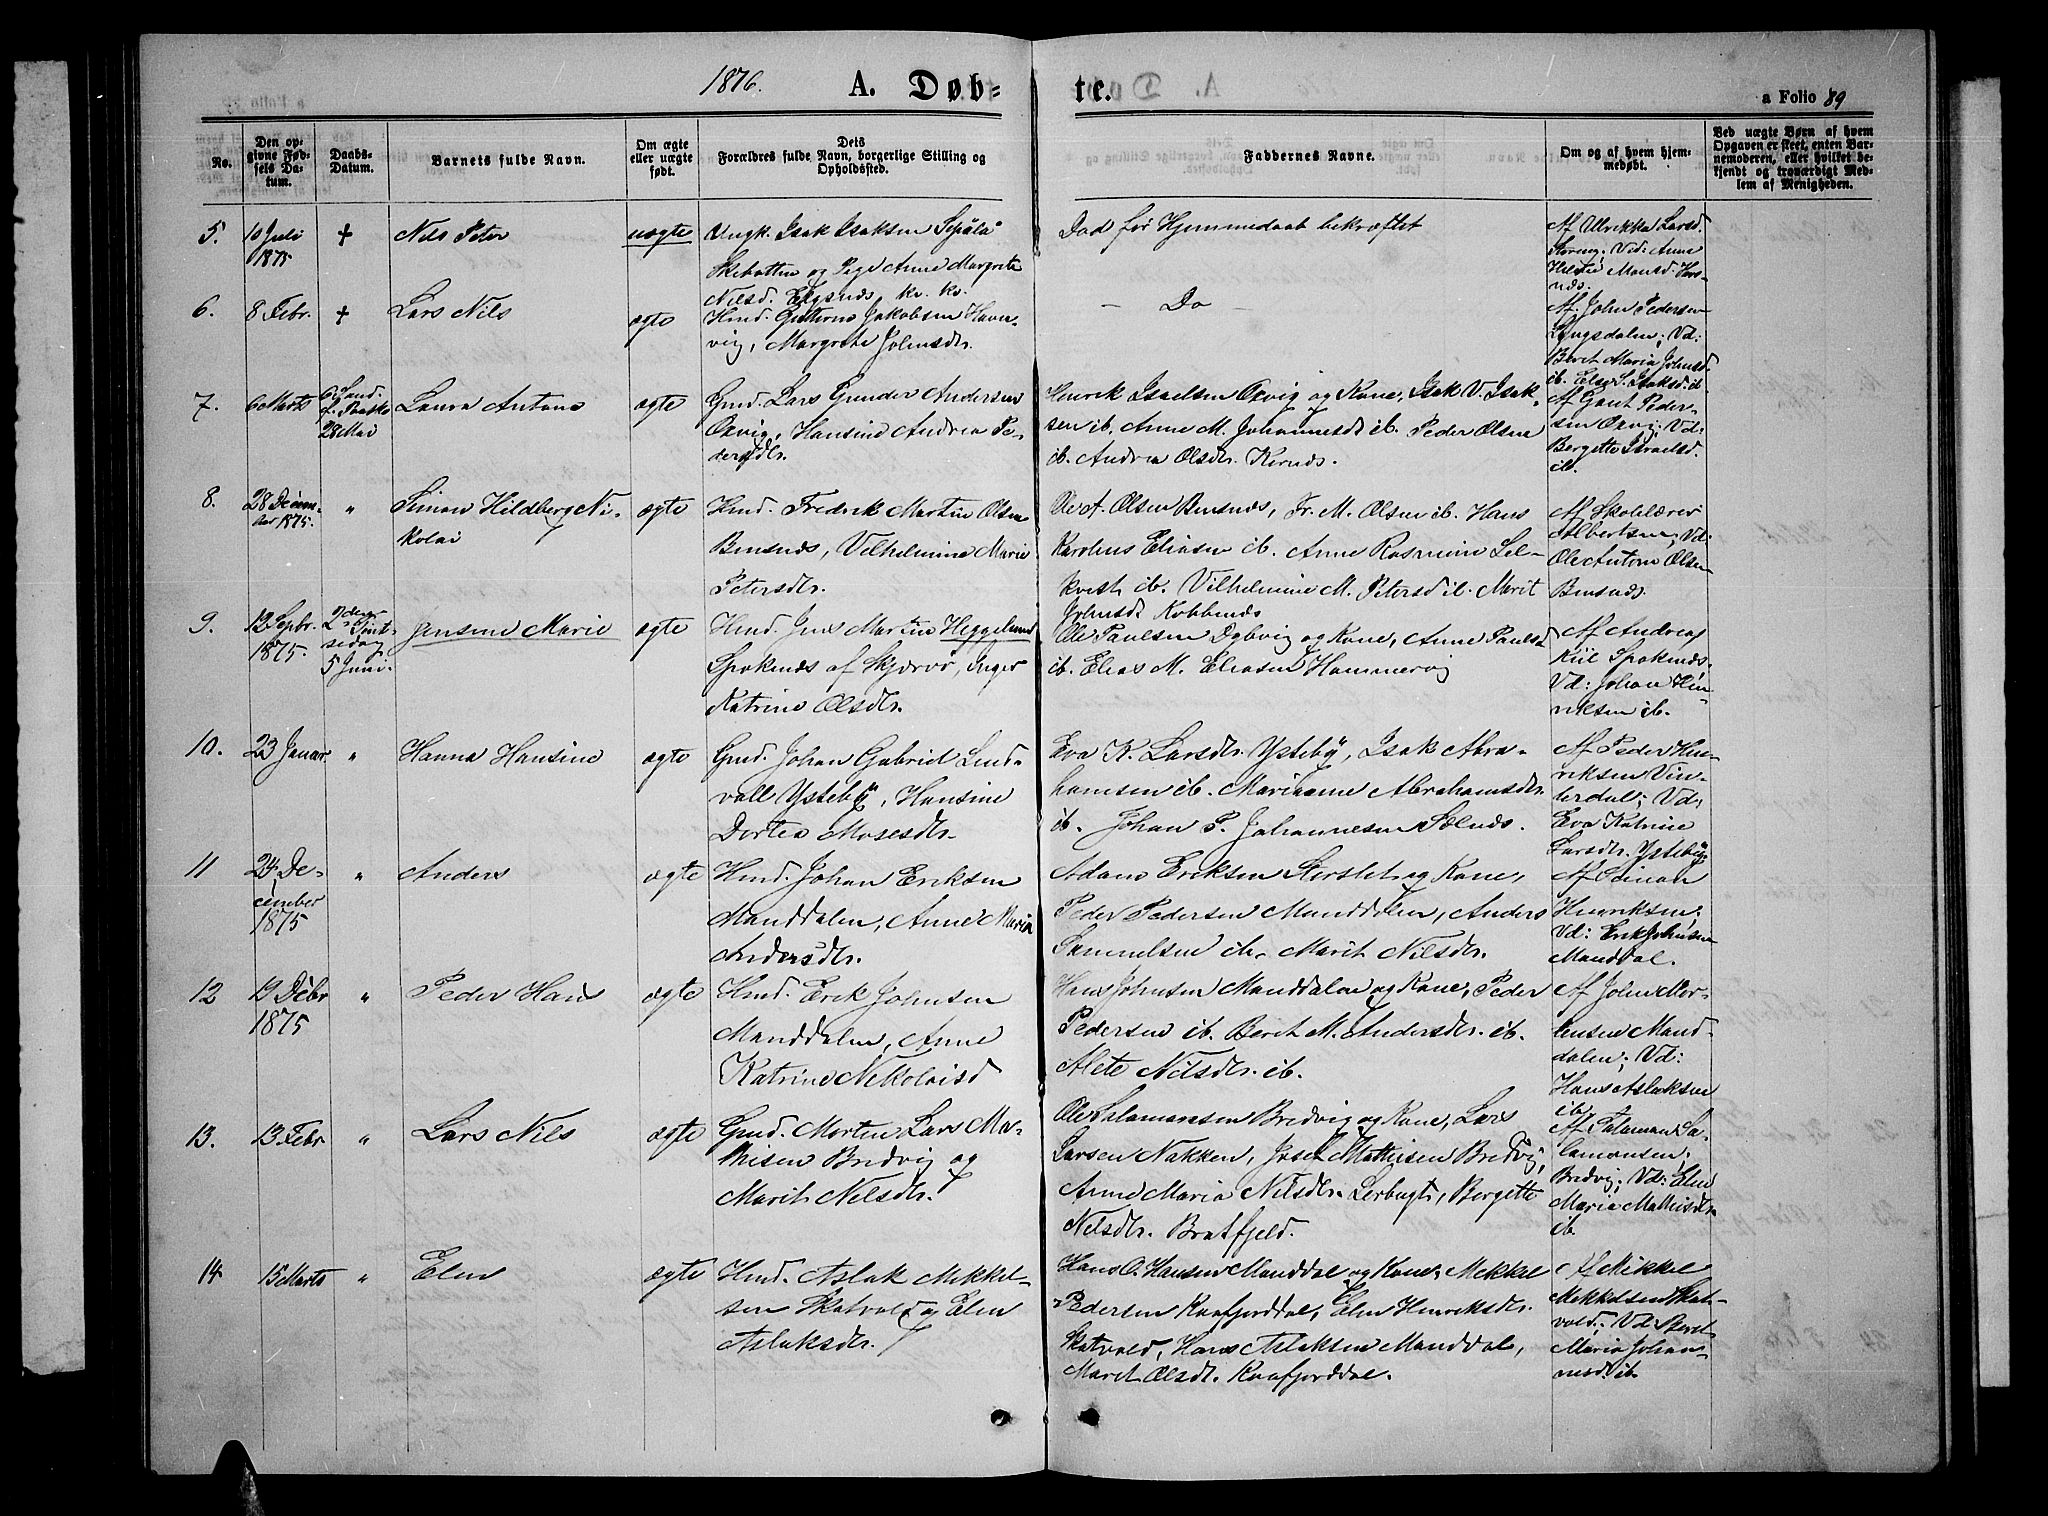 1876. A. Døb=
te.
a Folio 89
No.
Den op-
givne Fød-
sels Da-
tum.
Daabs-
Datum.
Barnets fulde Navn.
Om ægte
eller uægte
født.
Dets
Forældres fulde Navn, borgerlige Stilling og
Opholdssted.
Faddernes Navne.
Om og af hvem hjem-
medøbt.
Ved uægte Børn af hvem
Opgaven er skeet, enten Bar-
nemoderen, eller hvilket be-
kjendt og troværdigt Med-
lem af Menigheden.
5.
10 Juli
1875
+
Nils Peter
uægte
Ungk. Isak Isaksen Sepälä
Skibotten og Pige Anne Margrete
Nilsd. Elgsnæs, kv. kv.
Død før Hjemmedaab bekræftet
Af Ulrikka Larsd.
Storeng; Vid: Anne
Mansd. Hors-
næs.
6.
8 Febr.
+
Lars Nils
ægte
Hmd. Guttorm Jakobsen Haver-
vig, Margrete Johnsdr.
- Do -
Af John Pedersen
Lyngsdalen; Vd:
Beret Maria Johnsd.
ib. Else S. Isaksd. ib
7.
6 Marts
6 Sønd.
f. Paaske
28 Mai
Laura Antona
ægte
Gmd. Lars Gunder Andersen
Oxvig, Hansine Andrea Pe-
dersdtr.
Henrik Isaelsen Oxvig og Kone, Isak V. Isak-
sen ib. Anne M. Johannesdt ib. Peder Olsen
ib. Andrea Olsdtr. Kernæs.
Af Gout Peder-
sen Oxvig; Vd:
Bergette Israelsd.
ib.
8.
28 Decem-
ber 1875.
"
Simon Hildberg Ni-
kolai
ægte
Hmd. Fredrik Martin Olsen
Bensnæs, Vilhelmine Marie
Petersdtr.
Ole A. Olsen Bensnæs, Fr. M. Olsen ib. Hans
Karolius Eliasen ib. Anne Rasmine Lel-
kvest ib. Vilhelmine M. Petersd ib. Marit
Johnsdt. Kobbenæs
Af Skolelærer
Albertsen; Vd:
Ole Anton Olsen
Bensnæs.
9.
12 Sepbr.
1875.
2den
Pint-
sedag
5 Juni.
Jensine Marie
ægte
Hmd. Jens Martin Heggelund
Spoknæs af Skjærvø, Inger
Katrine Olsdtr.
Ole Paulsen Dybvig og Kone, Anne Paulsd
ib. Elias M. Eliasen Hammervog
Af Andreas
Kiil Spoknæs.
Vd: Johan Hen-
riksen ib.
10.
23 Januar
"
Hanna Hansine
ægte
Gmd. Johan Gabriel Lind-
vall Ysteby, Hansine
Dortea Mosesdtr.
Eva K. Larsdtr. Ysteby, Isak Abra-
hamsen ib. Marianne Abrahamsdtr
ib. Johan P. Johannesen Solnæs.
Af Peder Hen-
riksen Vin-
terdal; Vd:
Eva Katrine
Larsdtr. Ysteby
11
24 De-
cember
1875
"
Anders
ægte
Hmd. Johan Eriksen
Manddalen, Anne Maria
Andersdtr.
Adam Eriksen Storslet og Kone,
Peder Pedersen Manddalen, Anders
Samuelsen ib. Marit Nilsdtr.
Af Simon
Henriksen;
Vd: Erik Johnsen
Manddal.
12
19 Debr
1875
"
Peder Hans
ægte
Hmd. Erik Johnsen
Manddalen, Anne
Katrine Nikolaisd
Hans Johnsen Manddalen og Kone, Peder
Pedersen ib. Beret M. Andersdtr. ib.
Alete Nilsdtr. ib.
Af John Mor-
tensen Mand-
dalen; Vd:
Hans Aslaksen
ib.
13.
13 Febr
"
Lars Nils
ægte
Gmd. Morten Lars Ma-
thisen Bredvig og
Marit Nilsdtr.
Ole Salamonsen Bredvig og Kone, Lars
Larsen Nakken, Josef Mathisen Bredvig,
Anne Maria Nilsdtr. Lerbugt, Bergette
Nilsdtr. Bratfjeld.
Af Salamon Sa-
lamonsen
Bredvig; Vd: Elen
Maria Mathisdtr.
ib.
14
15 Marts
"
Elen
ægte
Hmd. Aslak Mikkel-
sen Skatvold og Elen
Aslaksdtr.
Hans O. Hansen Manddal og Kone; Mikkel
Pedersen Kaafjorddal, Elen Henriksdtr.
Skatvold, Hans Aslaksen Manddal,
Maret Olsdt. Kaafjorddal.
Af Mikkel
Mikkelsen Skat-
vold; Vd: Beret
Maria Johan-
nesd. ib